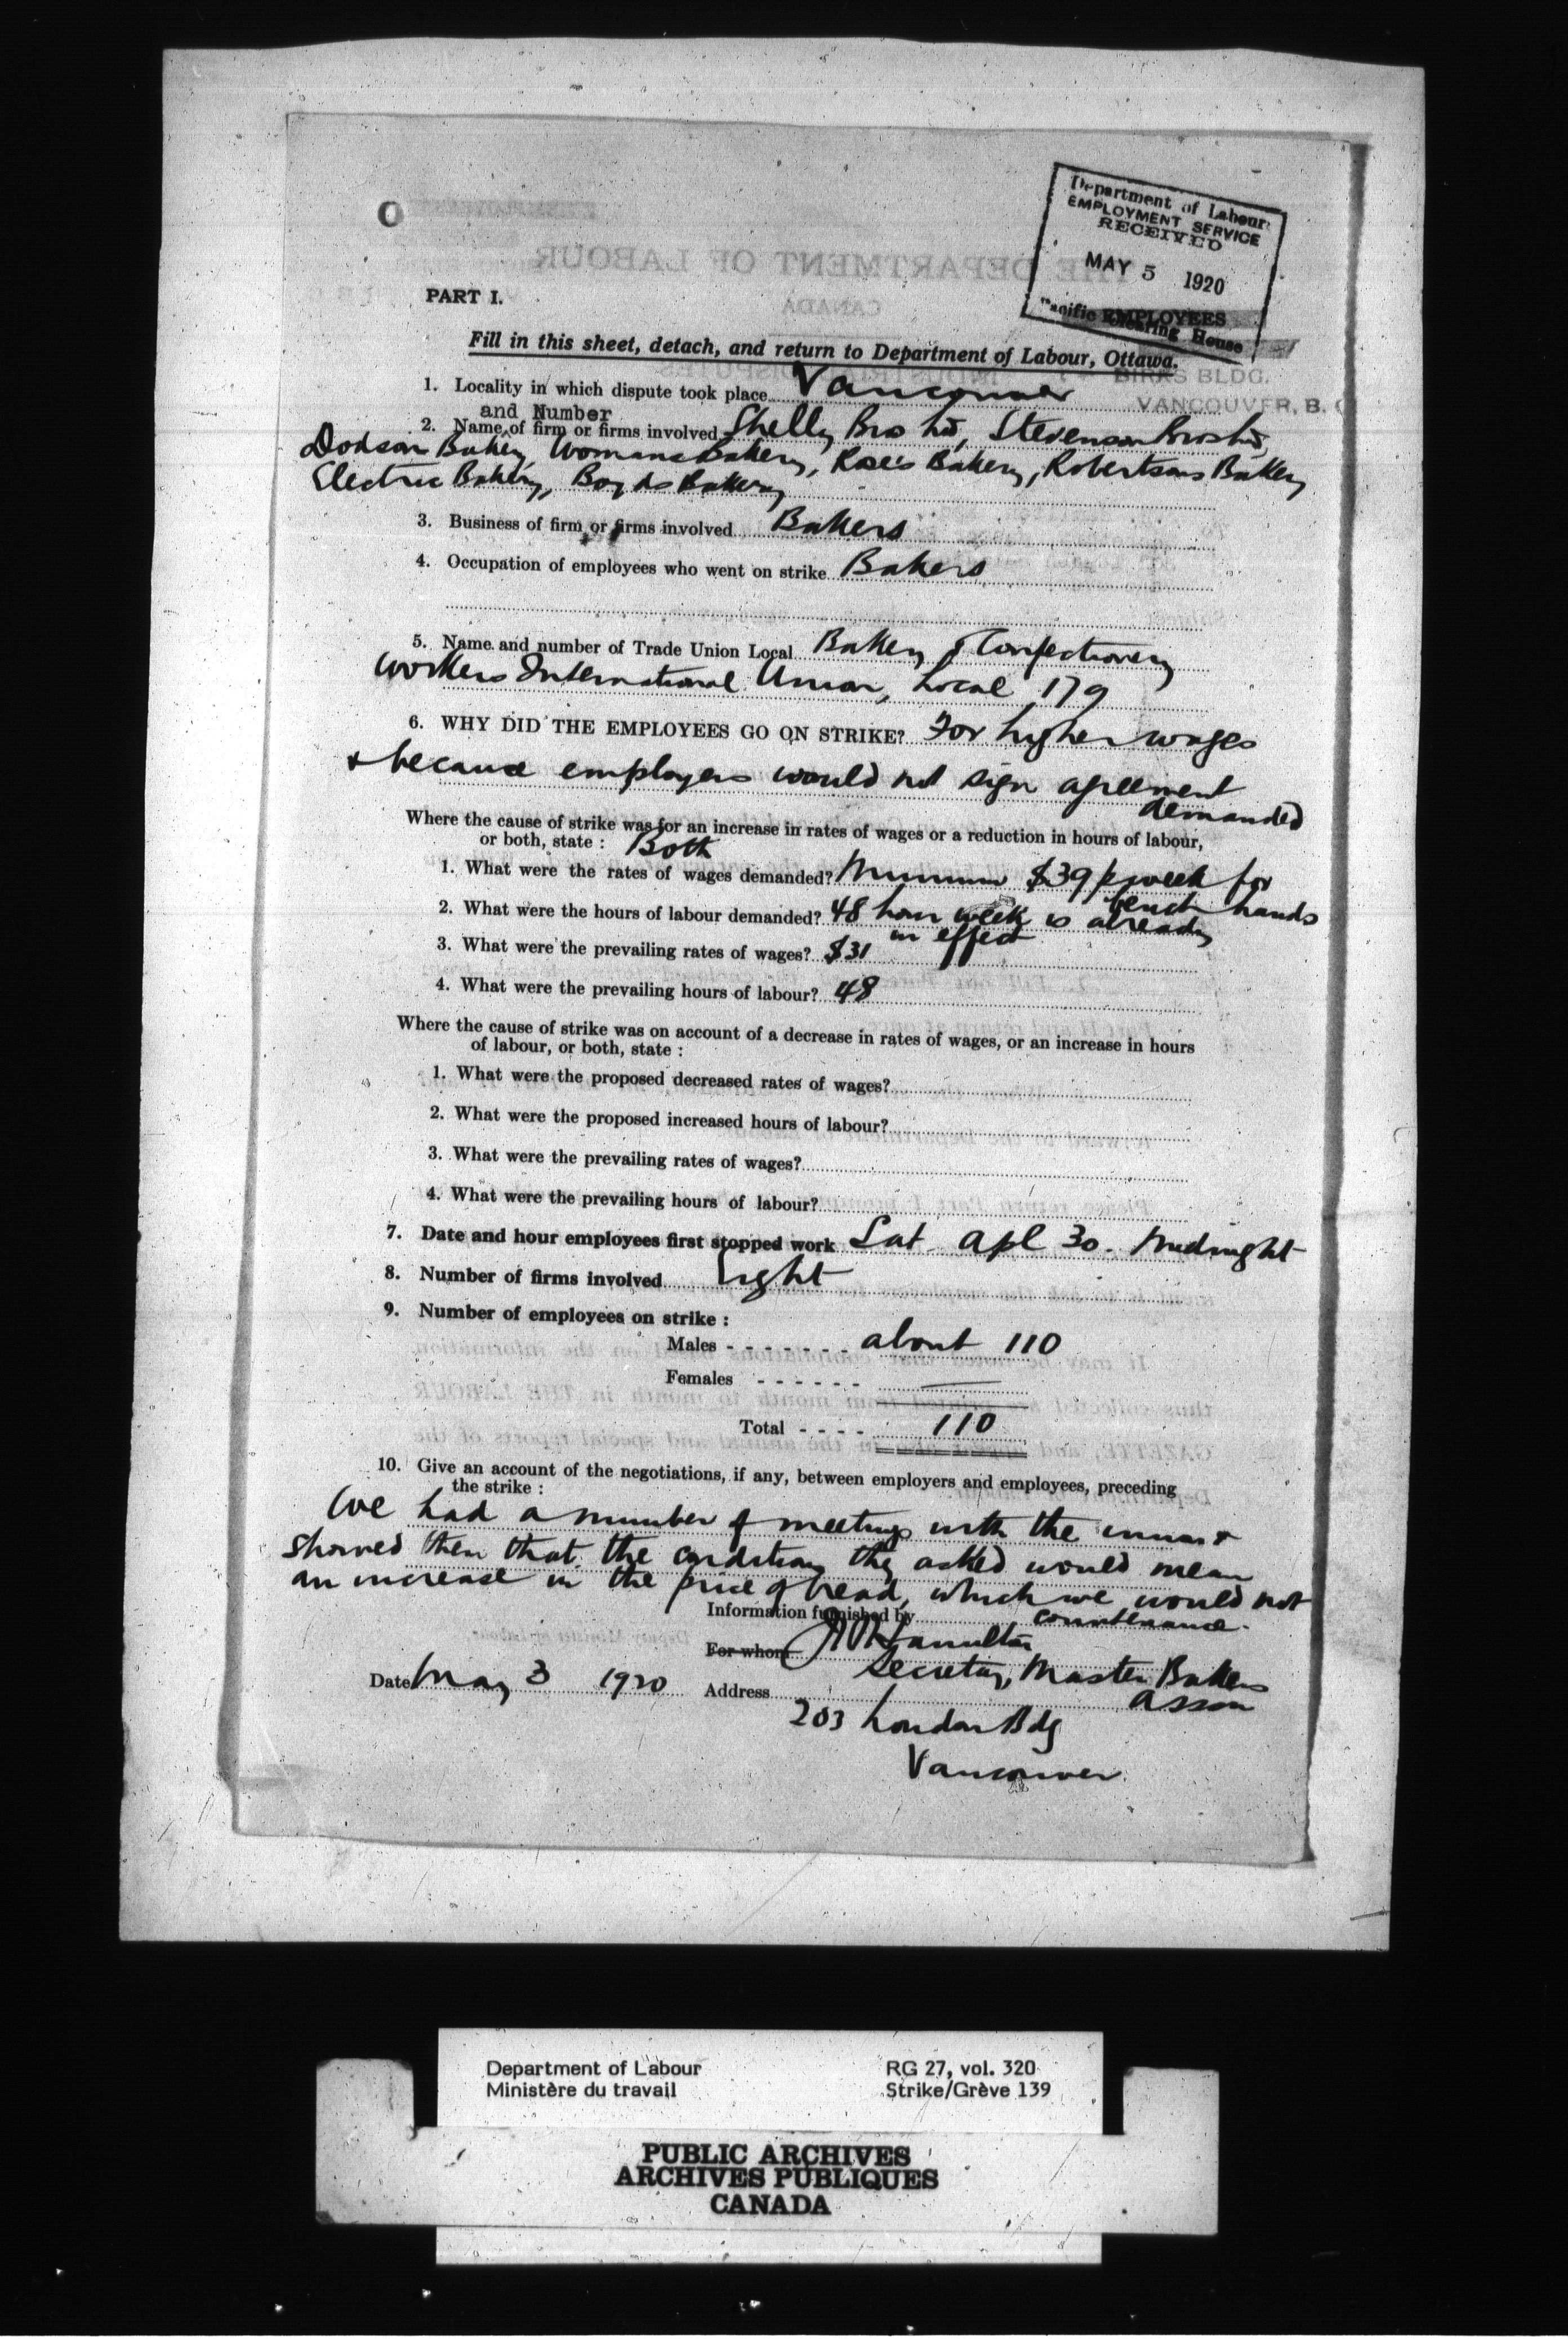 Department of Labour
EMPLOYMENT SERVICE
RECEIVED
MAY 5 1920
EMPLOYEES
Pacific Clearing House
BIRKS BLDG.
VANCOUVER, B. C
O
THE DEPARTMENT OF LABOUR
CANADA
PART I.
Fill in this sheet, detach, and return to Department of Labour, Ottawa.
1. Locality in which dispute took place Vancouver
and Number
2. Name of firm or firms involved Shelly Bro Ltd, Stevenson Bros Ltd,
Dodson Bakery, Womans Bakery, Rose's Bakery, Robertsons Bakery
Electric Bakery, Boyds Bakery
3. Business of firm or firms involved Bakers
4. Occupation of employees who went on strike Bakers
5. Name and number of Trade Union Local Bakery & Confectionery
Workers International Union, Local 179
6. WHY DID THE EMPLOYEES GO ON STRIKE? For higher wages
& because employers would not sign agreement
demanded
Where the cause of strike was for an increase in rates of wages or a reduction in hours of labour,
or both, state : Both
1. What were the rates of wages demanded? Minimum $39 p week for
bench hands
2. What were the hours of labour demanded? 48 hour week is already
in effect
3. What were the prevailing rates of wages? $31
4. What were the prevailing hours of labour? 48
Where the cause of strike was on account of a decrease in rates of wages, or an increase in hours
of labour, or both, state :
1. What were the proposed decreased rates of wages?
2. What were the proposed increased hours of labour?
3. What were the prevailing rates of wages?
4. What were the prevailing hours of labour?
7. Date and hour employees first stopped work Sat Apl 30. Midnight
8. Number of firms involved Eight
9. Number of employees on strike :
Males - - - - - - - about 110
Females - - - - - - —
Total - - - - 110
10. Give an account of the negotiations, if any, between employers and employees, preceding
the strike :
We had a number of meetings with the union &
showed them that the conditions they asked would mean
an increase in the price of bread, which we would not
countenance.
Information furnished by
For whom Hamilton
Secretary, Master Bakers
Assn
Date May 3 1920 Address
203 London Bdg
Vancouver.
Department of Labour RG 27, vol. 320
Ministère du travail Strike/Grève 139
PUBLIC ARCHIVES
ARCHIVES PUBLIQUES
CANADA